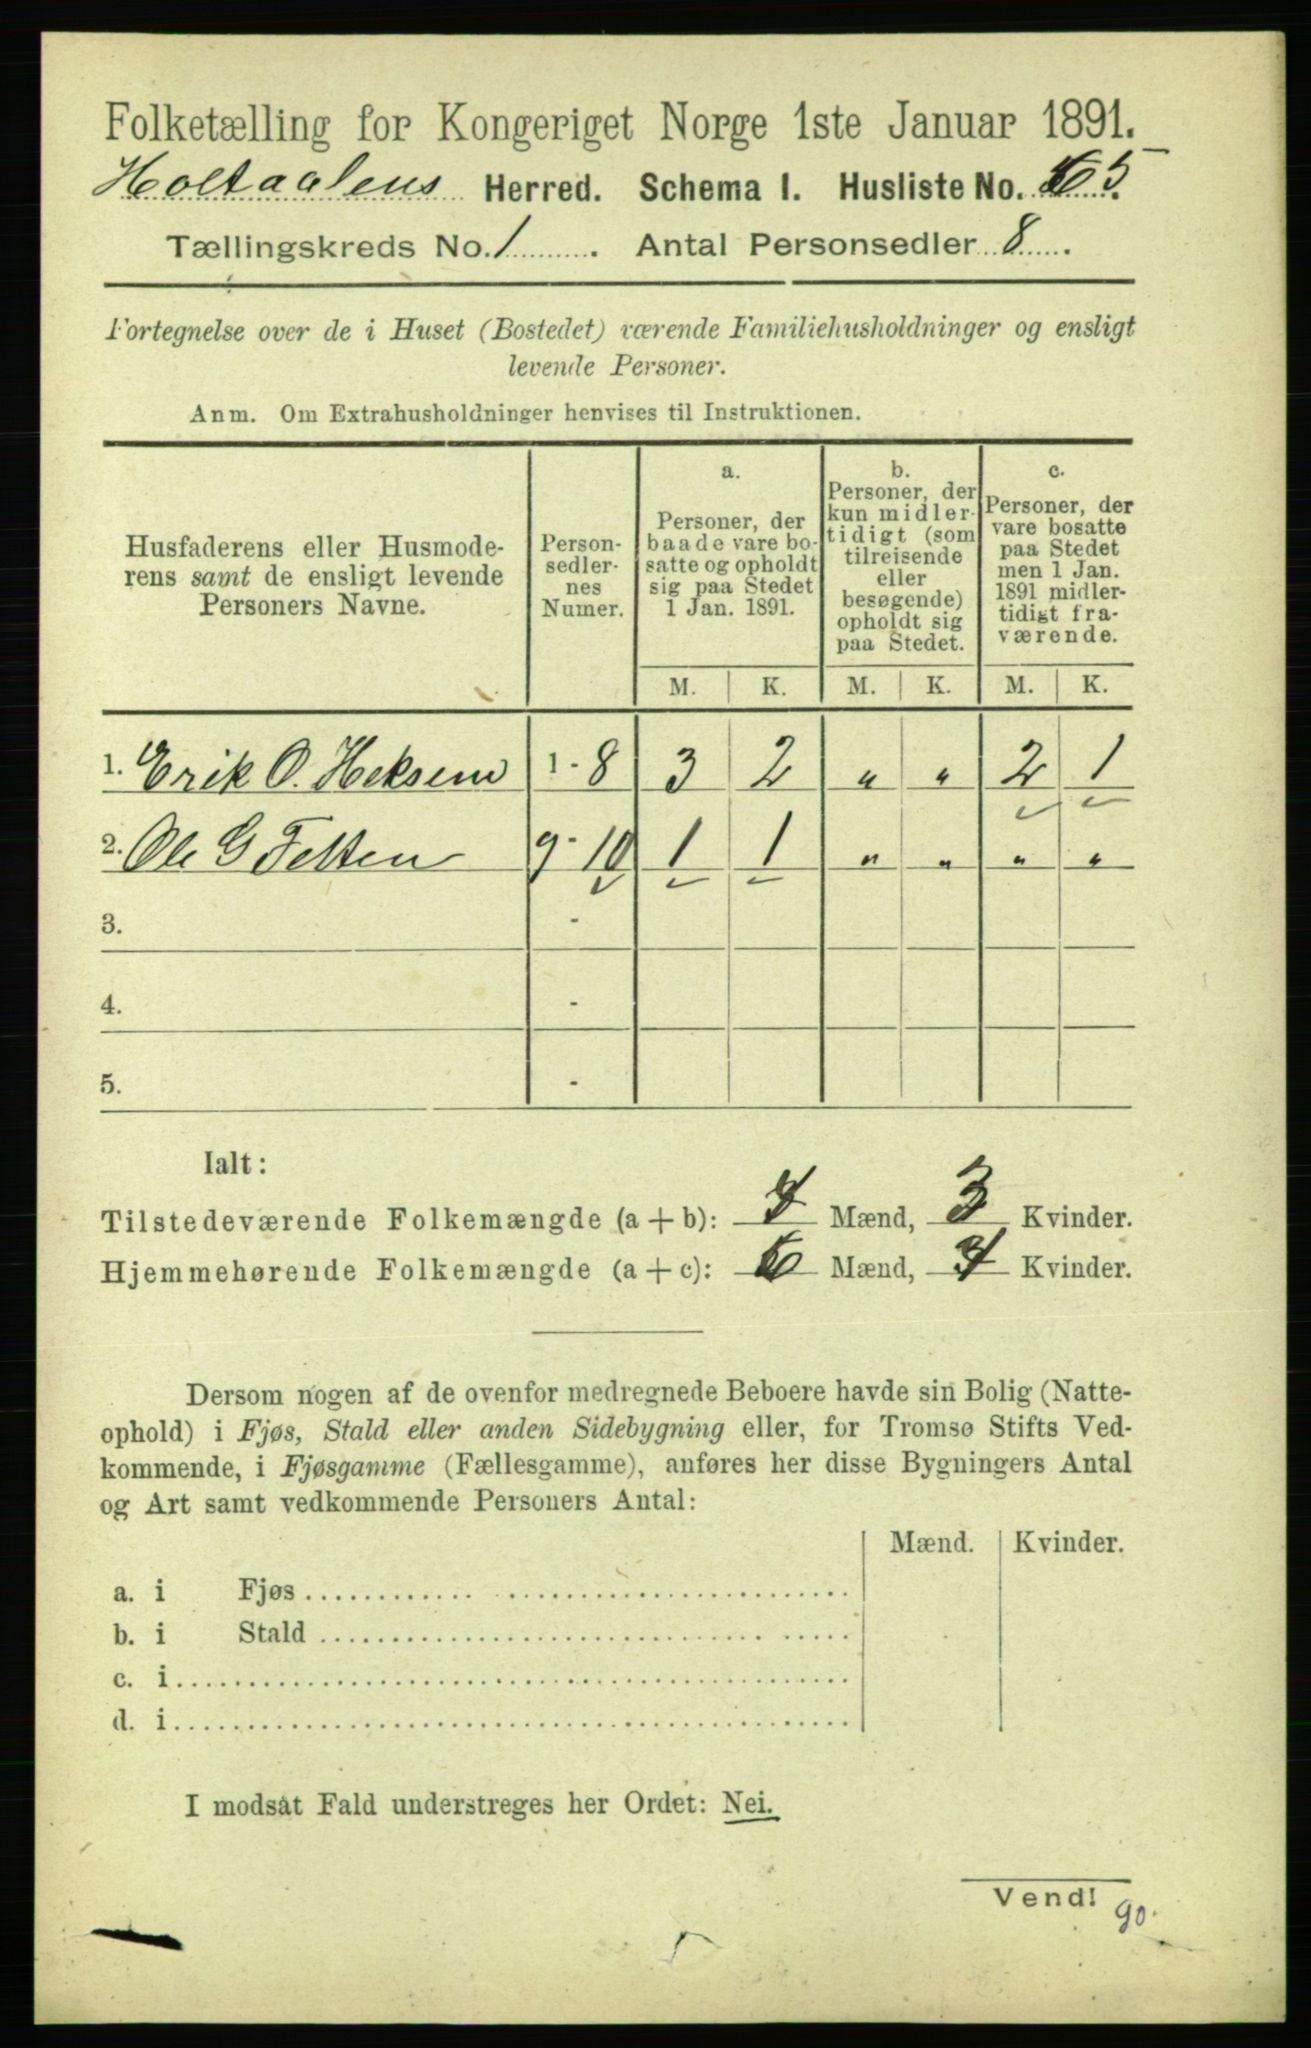 Folketælling for Kongeriget Norge 1ste Januar 1891.
Holtaalens Herred. Schema 1. Husliste No. 5
Tællingskreds No. 1. Antal Personsedler 8.
Fortegnelse over de i Huset (Bostedet) værende Familiehusholdninger og ensligt
levende Personer.
Anm. Om Extrahusholdninger henvises til Instruktionen.
Husfaderens eller Husmode-
rens samt de ensligt levende
Personers Navne.
Person-
sedler-
nes
Numer.
a.
Personer, der
baade vare bo-
satte og opholdt
sig paa Stedet
1 Jan. 1891.
b.
Personer, der
kun midler-
tidigt (som
tilreisende
eller
besøgende)
opholdt sig
paa Stedet.
c.
Personer, der
vare bosatte
paa Stedet
men 1 Jan.
1891 midler-
tidigt fra-
værende.
M. K. M. K. M. K.
1. Erik O. Heksem 1-8 3 2 " " 2 1
2. Ole G Felten 9-10 1 1 " " " "
3. -
4. -
5. -
Ialt:
Tilstedeværende Folkemængde (a + b): Mænd, 3 Kvinder.
Hjemmehørende Folkemængde (a + c): 6 Mænd, 4 Kvinder.
Dersom nogen af de ovenfor medregnede Beboere havde sin Bolig (Natte-
ophold) i Fjøs, Stald eller anden Sidebygning eller, for Tromsø Stifts Ved-
kommende, i Fjøsgamme (Fællesgamme), anføres her disse Bygningers Antal
og Art samt vedkommende Personers Antal:
Mænd. Kvinder.
a. i Fjøs
b. i Stald
c. i
d. i
I modsat Fald understreges her Ordet: Nei.
Vend!
90.